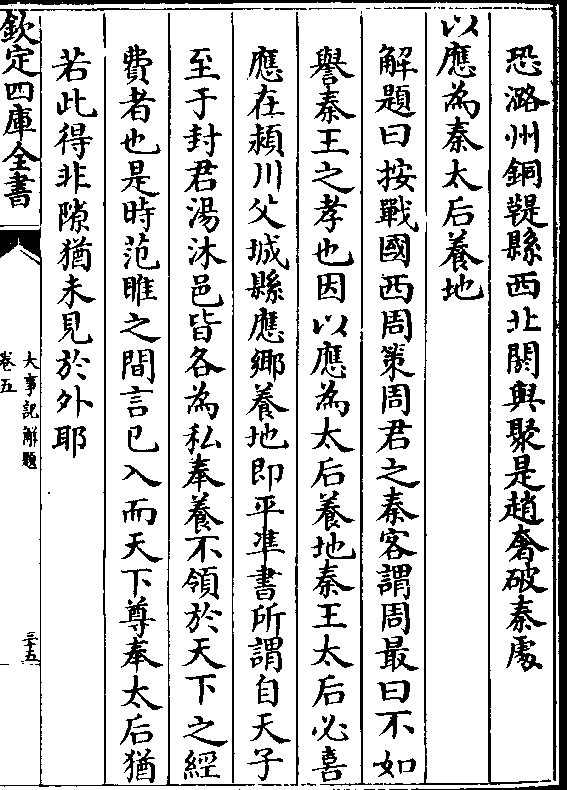 恐潞州銅鞮縣西北閼與聚是趙奢破秦處
以應為秦太后養地
解題曰按戰國西周策周君之秦客謂周最曰不如
譽秦王之孝也因以應為太后養地秦王太后必喜
應在潁川父城縣應鄉養地即平準書所謂自天子
至于封君湯沐邑皆各為私奉養不領於天下之經
費者也是時范雎之間言已入而天下尊奉太后猶
若此得非隙猶未見於外耶
欽定四庫全書
大事記解題
卷五
三十五